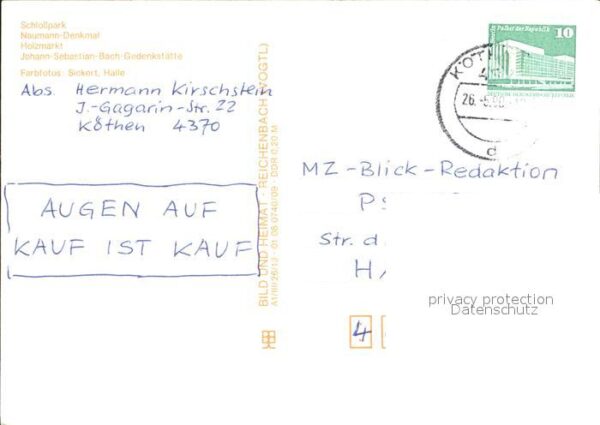 Schloßpark
Naumann-Denkmal
Holzmarkt
Johann-Sebastian-Bach-Gedenkstätte
Farbfotos: Sickert, Halle
Abs. Hermann Kirschstein
J.-Gagarin-Str. 22
Köthen 4370
AUGEN AUF
KAUF IST KAUF
BILD UND HEIMAT · REICHENBACH (VOGTL)
DDR 0,20 M
Palast der Republik 10
KÖTH
26.-5.
d
MZ-Blick-Redaktion
P
Str. d
H
4
privacy protection
Datenschutz